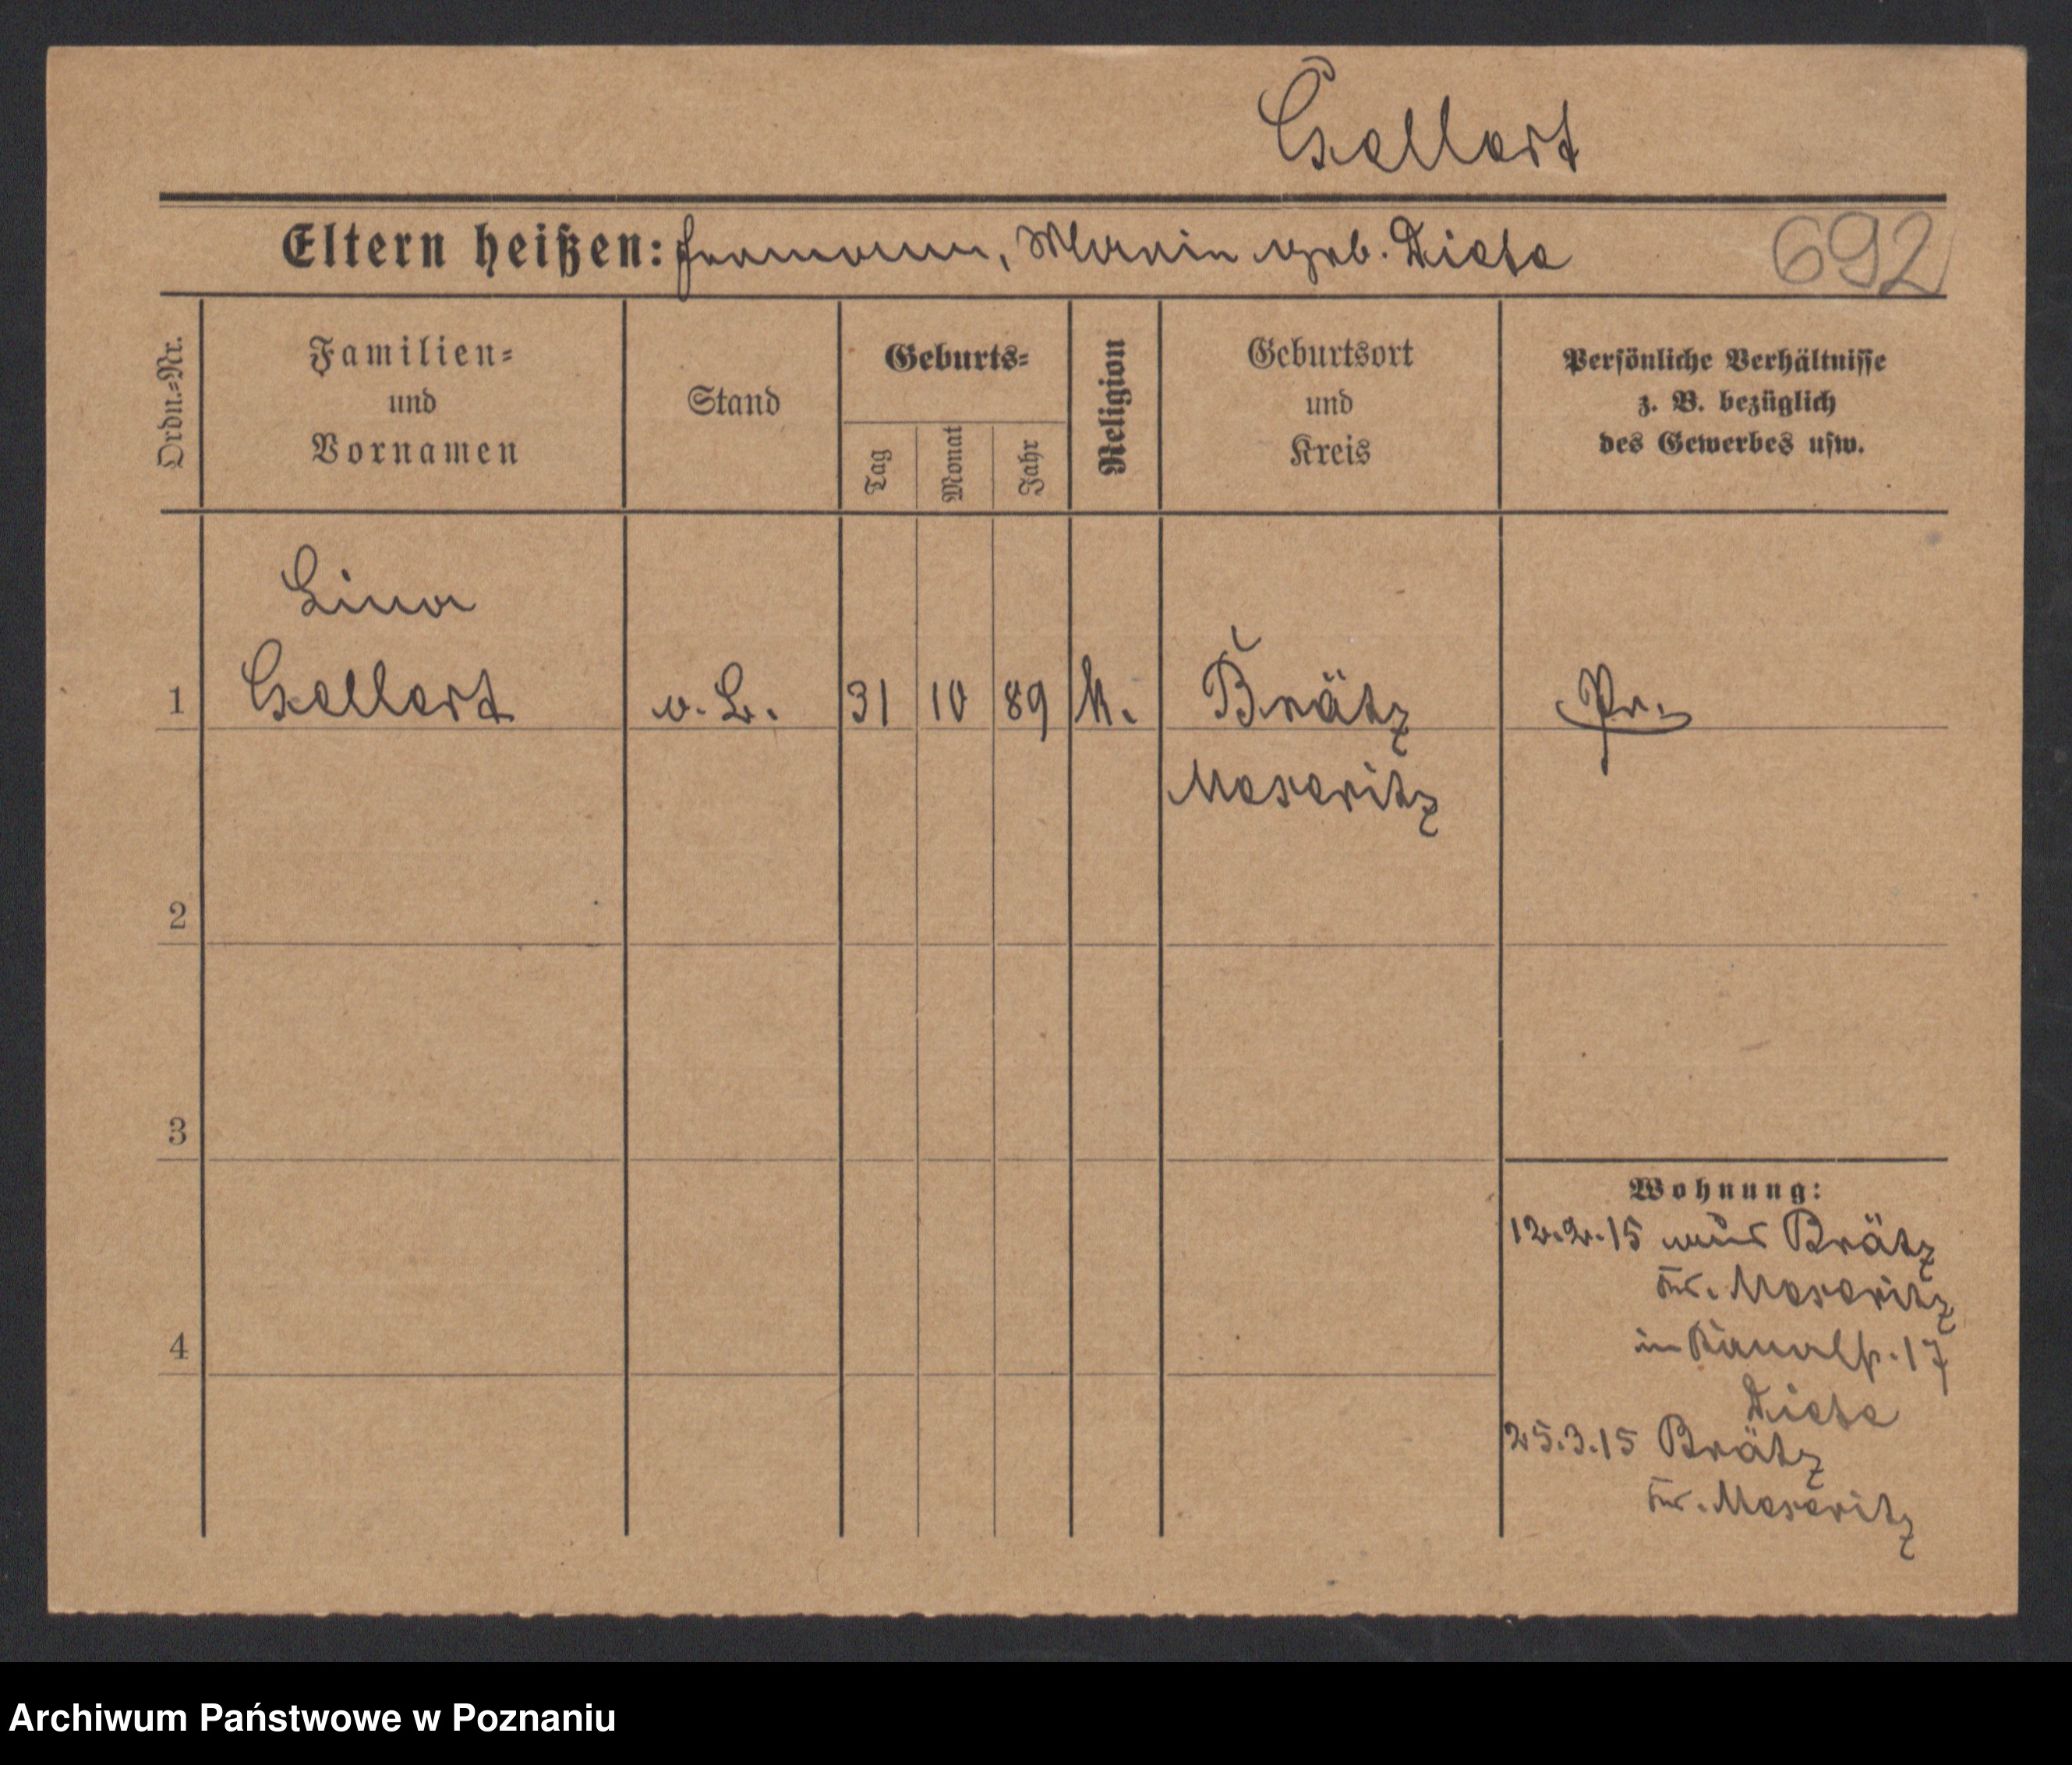 Gsellert
Eltern heißen: Hermann, Marie geb. Diete
692
Ordn.-Nr.
Familien-
und
Vornamen
Stand
Geburts-
Tag
Monat
Jahr
Religion
Geburtsort
und
Kreis
Persönliche Verhältnisse
z. B. bezüglich
des Gewerbes usw.
Lina
1 Gsellert o. B. 31 10 89 k. Brätz Pr.
Meseritz
2
3
4
Wohnung:
12.2.15 aus Brätz
Kr. Meseritz
in Kanalstr. 17
Diete
25.3.15 Brätz
Kr. Meseritz
Archiwum Państwowe w Poznaniu